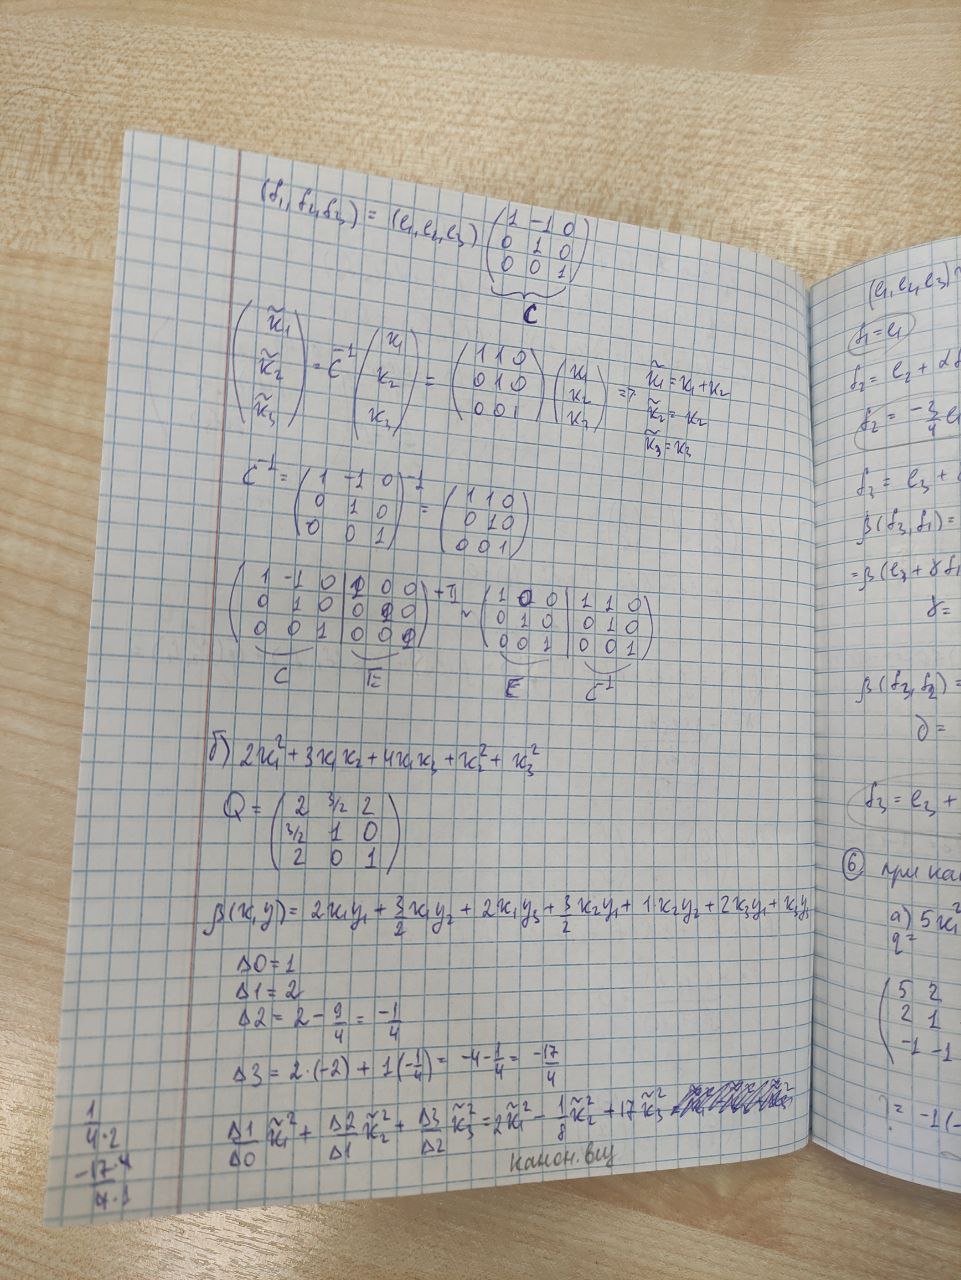 (f₁, f₂, f₃) = (e₁, e₂, e₃) (1 -1 0
0 1 0
0 0 1)
C
(x̃₁ x̃₂ x̃₃) = C⁻¹ (x₁ x₂ x₃) = (1 1 0 / 0 1 0 / 0 0 1) (x₁ x₂ x₃) => x̃₁ = x₁ + x₂
x̃₂ = x₂
x̃₃ = x₃
C⁻¹ = (1 -1 0 / 0 1 0 / 0 0 1)⁻¹ = (1 1 0 / 0 1 0 / 0 0 1)
(1 -1 0 | 1 0 0 / 0 1 0 | 0 1 0 / 0 0 1 | 0 0 1) +II ~ (1 0 0 | 1 1 0 / 0 1 0 | 0 1 0 / 0 0 1 | 0 0 1)
C E E C⁻¹
б) 2x₁² + 3x₁x₂ + 4x₁x₃ + x₂² + x₃²
Q = (2 3/2 2
3/2 1 0
2 0 1)
β(x, y) = 2x₁y₁ + 3/2 x₁y₂ + 2x₁y₃ + 3/2 x₂y₁ + 1·x₂y₂ + 2x₃y₁ + x₃y₃
Δ0 = 1
Δ1 = 2
Δ2 = 2 - 9/4 = -1/4
Δ3 = 2·(-2) + 1(-1/4) = -4 - 1/4 = -17/4
Δ1/Δ0 x̃₁² + Δ2/Δ1 x̃₂² + Δ3/Δ2 x̃₃² = 2x̃₁² - 1/8 x̃₂² + 17x̃₃²
канон. вид
1/4·2
(e₁, e₂, e₃)
f₁ = e₁
f₂ = e₂ + αf
f₂ = -3/4 e₁
f₃ = e₃ +
β(f₃, f₁) =
= β(e₃ + γf₁
γ =
β(f₃, f₂) =
∂ =
f₃ = e₃ +
6 при кан
а) 5x₁²
q =
5 2
2 1
-1 -1
? = -1(-